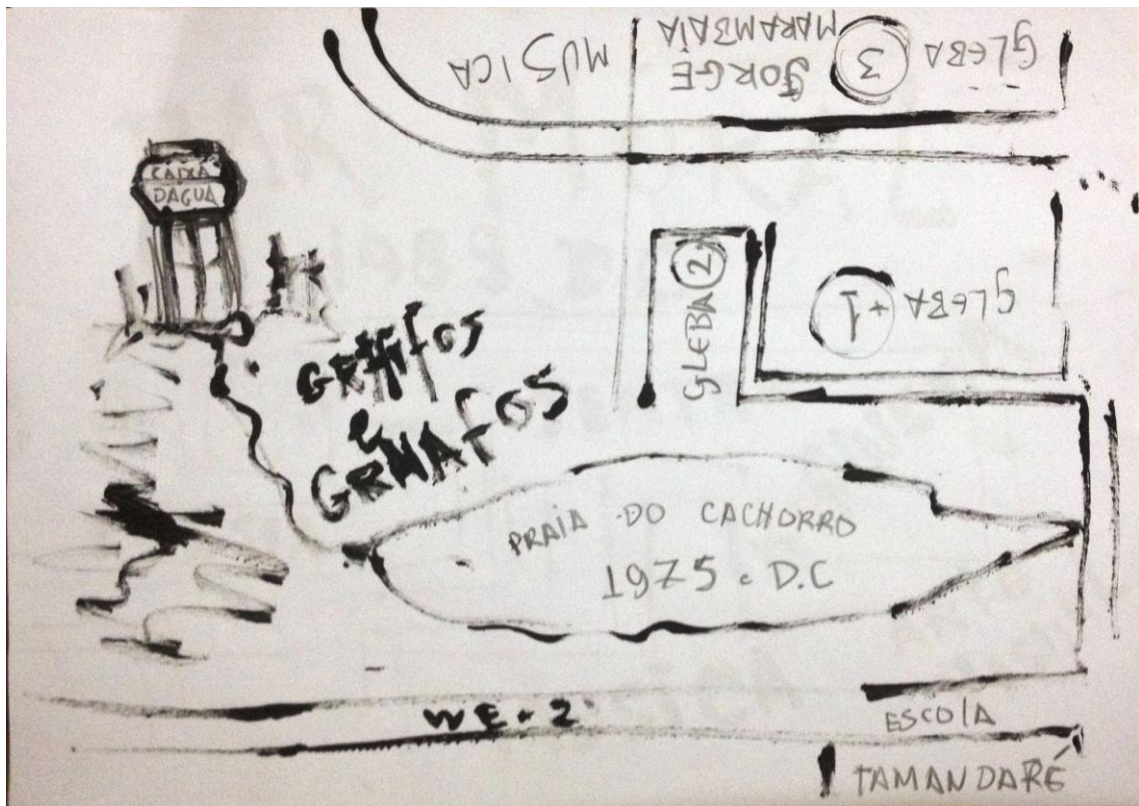 MUSICA
JORGE
MARAMBAIA
GLEBA 3
CAIXA
DAGUA
GLEBA 2
GLEBA + 1
GRIFFOS
e
GRWAFOS
PRAIA DO CACHORRO
1975 e D.C
WE - 2
ESCOLA
TAMANDARÉ